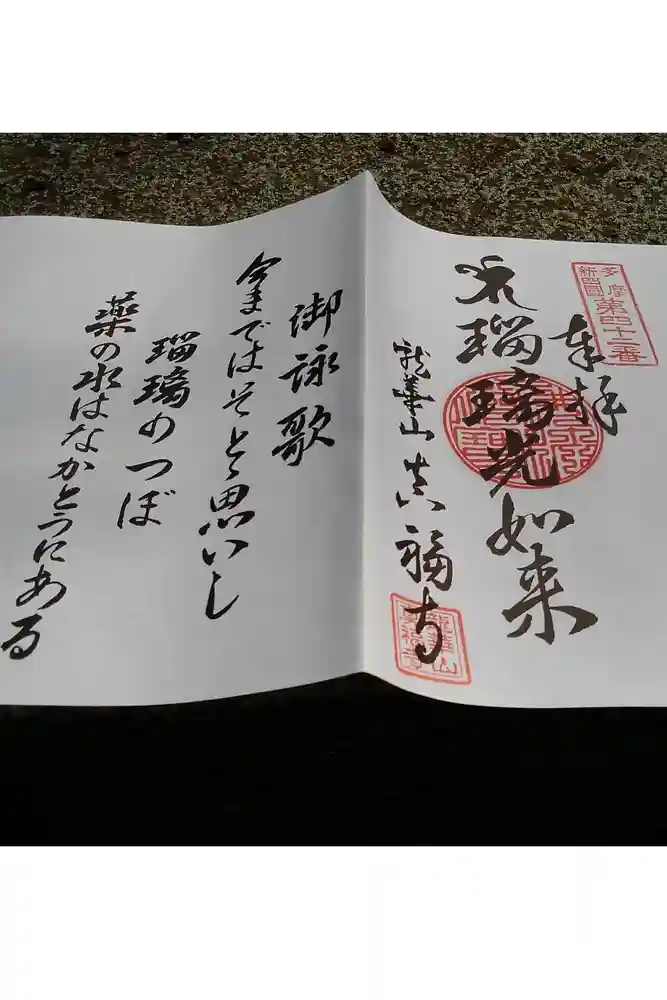 多摩
新四国
第四十二番
奉拝
瑠璃光如来
龍華山 真福寺
龍華山
真福寺
御詠歌
今まではそとゝ思いし
瑠璃のつぼ
薬の水はなかとうにある